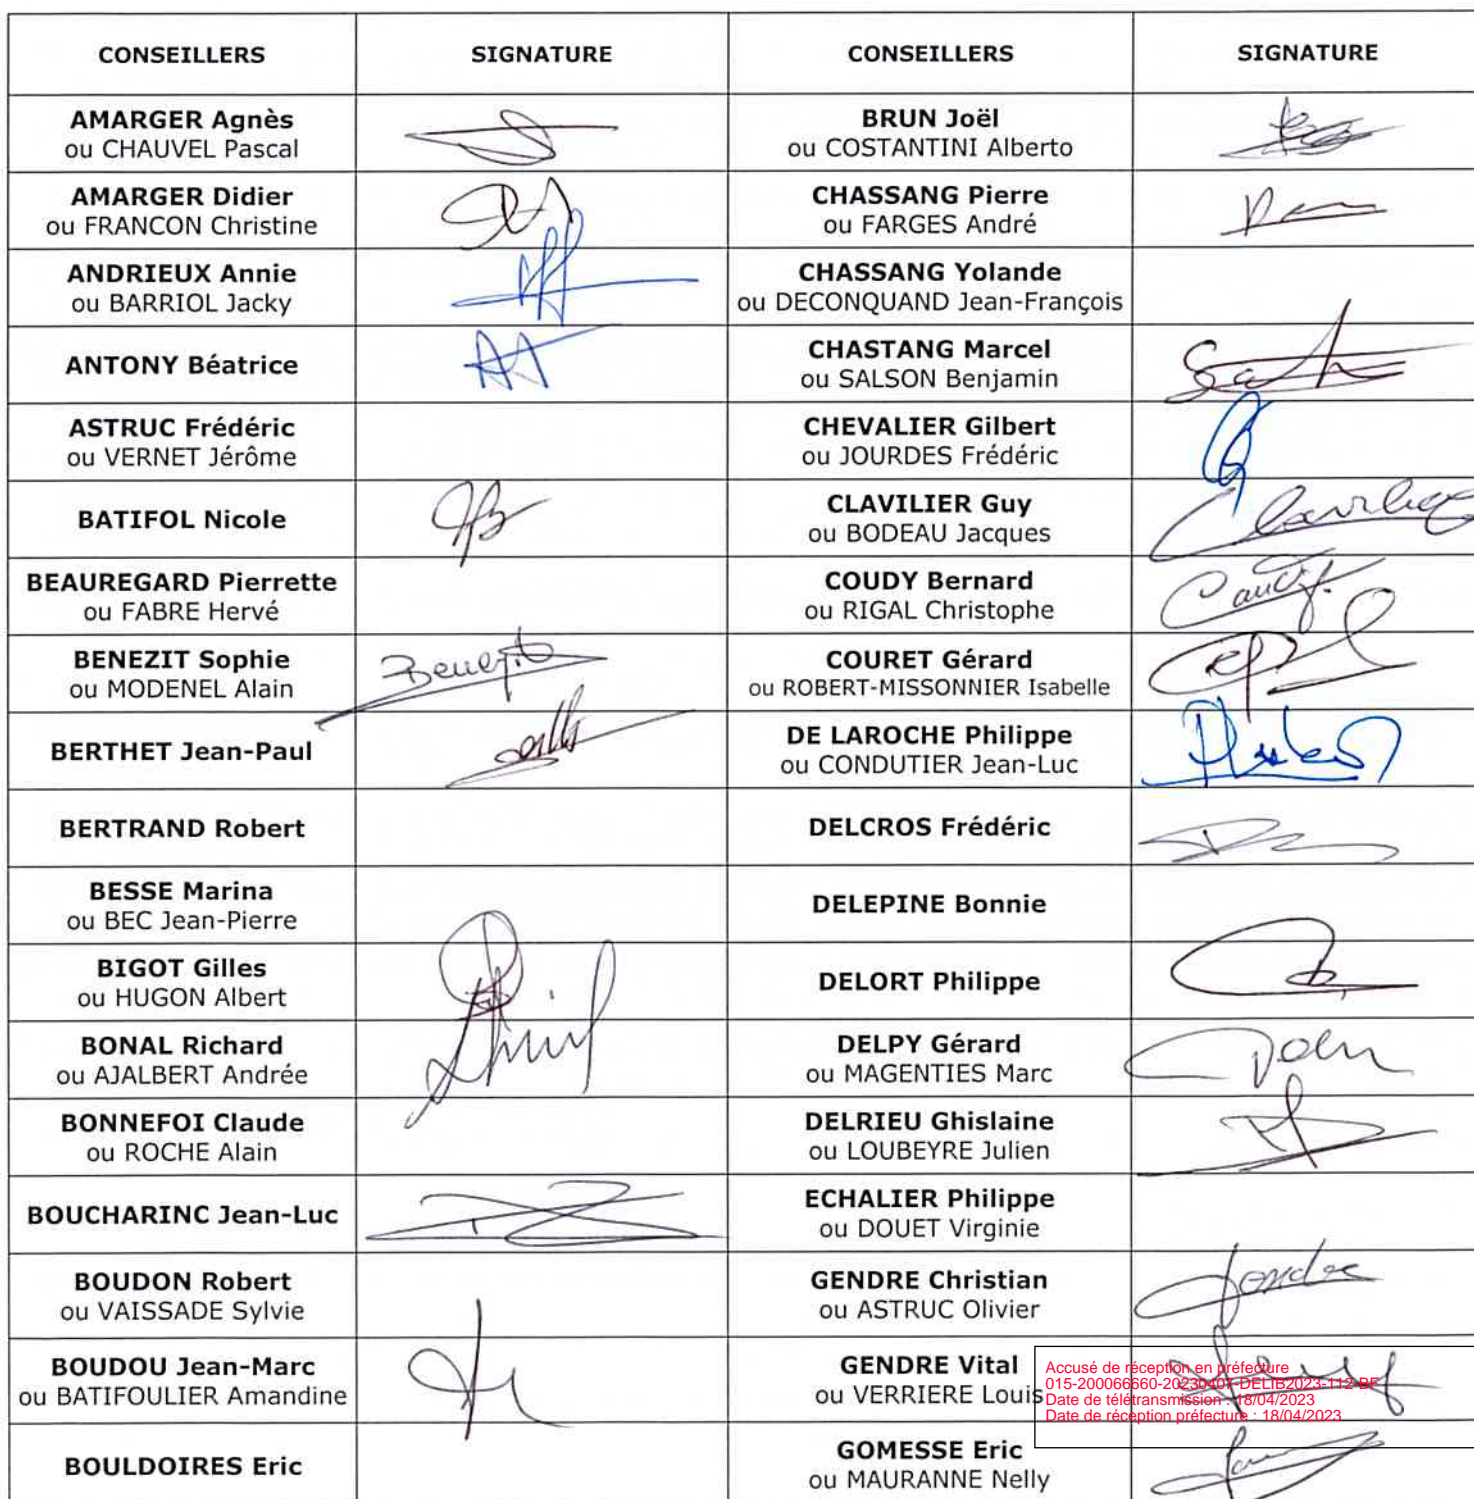 CONSEILLERS SIGNATURE CONSEILLERS SIGNATURE
AMARGER Agnès
ou CHAUVEL Pascal
BRUN Joël
ou COSTANTINI Alberto
AMARGER Didier
ou FRANCON Christine
CHASSANG Pierre
ou FARGES André
ANDRIEUX Annie
ou BARRIOL Jacky
CHASSANG Yolande
ou DECONQUAND Jean-François
ANTONY Béatrice
CHASTANG Marcel
ou SALSON Benjamin
ASTRUC Frédéric
ou VERNET Jérôme
CHEVALIER Gilbert
ou JOURDES Frédéric
BATIFOL Nicole
CLAVILIER Guy
ou BODEAU Jacques
BEAUREGARD Pierrette
ou FABRE Hervé
COUDY Bernard
ou RIGAL Christophe
BENEZIT Sophie
ou MODENEL Alain
Benezit
COURET Gérard
ou ROBERT-MISSONNIER Isabelle
BERTHET Jean-Paul
DE LAROCHE Philippe
ou CONDUTIER Jean-Luc
BERTRAND Robert
DELCROS Frédéric
BESSE Marina
ou BEC Jean-Pierre
DELEPINE Bonnie
BIGOT Gilles
ou HUGON Albert
DELORT Philippe
BONAL Richard
ou AJALBERT Andrée
DELPY Gérard
ou MAGENTIES Marc
BONNEFOI Claude
ou ROCHE Alain
DELRIEU Ghislaine
ou LOUBEYRE Julien
BOUCHARINC Jean-Luc
ECHALIER Philippe
ou DOUET Virginie
BOUDON Robert
ou VAISSADE Sylvie
GENDRE Christian
ou ASTRUC Olivier
Gendre
BOUDOU Jean-Marc
ou BATIFOULIER Amandine
GENDRE Vital
ou VERRIERE Louis
Accusé de réception en préfecture
015-200066660-20230407-DELIB2023-112-BF
Date de télétransmission : 18/04/2023
Date de réception préfecture : 18/04/2023
BOULDOIRES Eric
GOMESSE Eric
ou MAURANNE Nelly